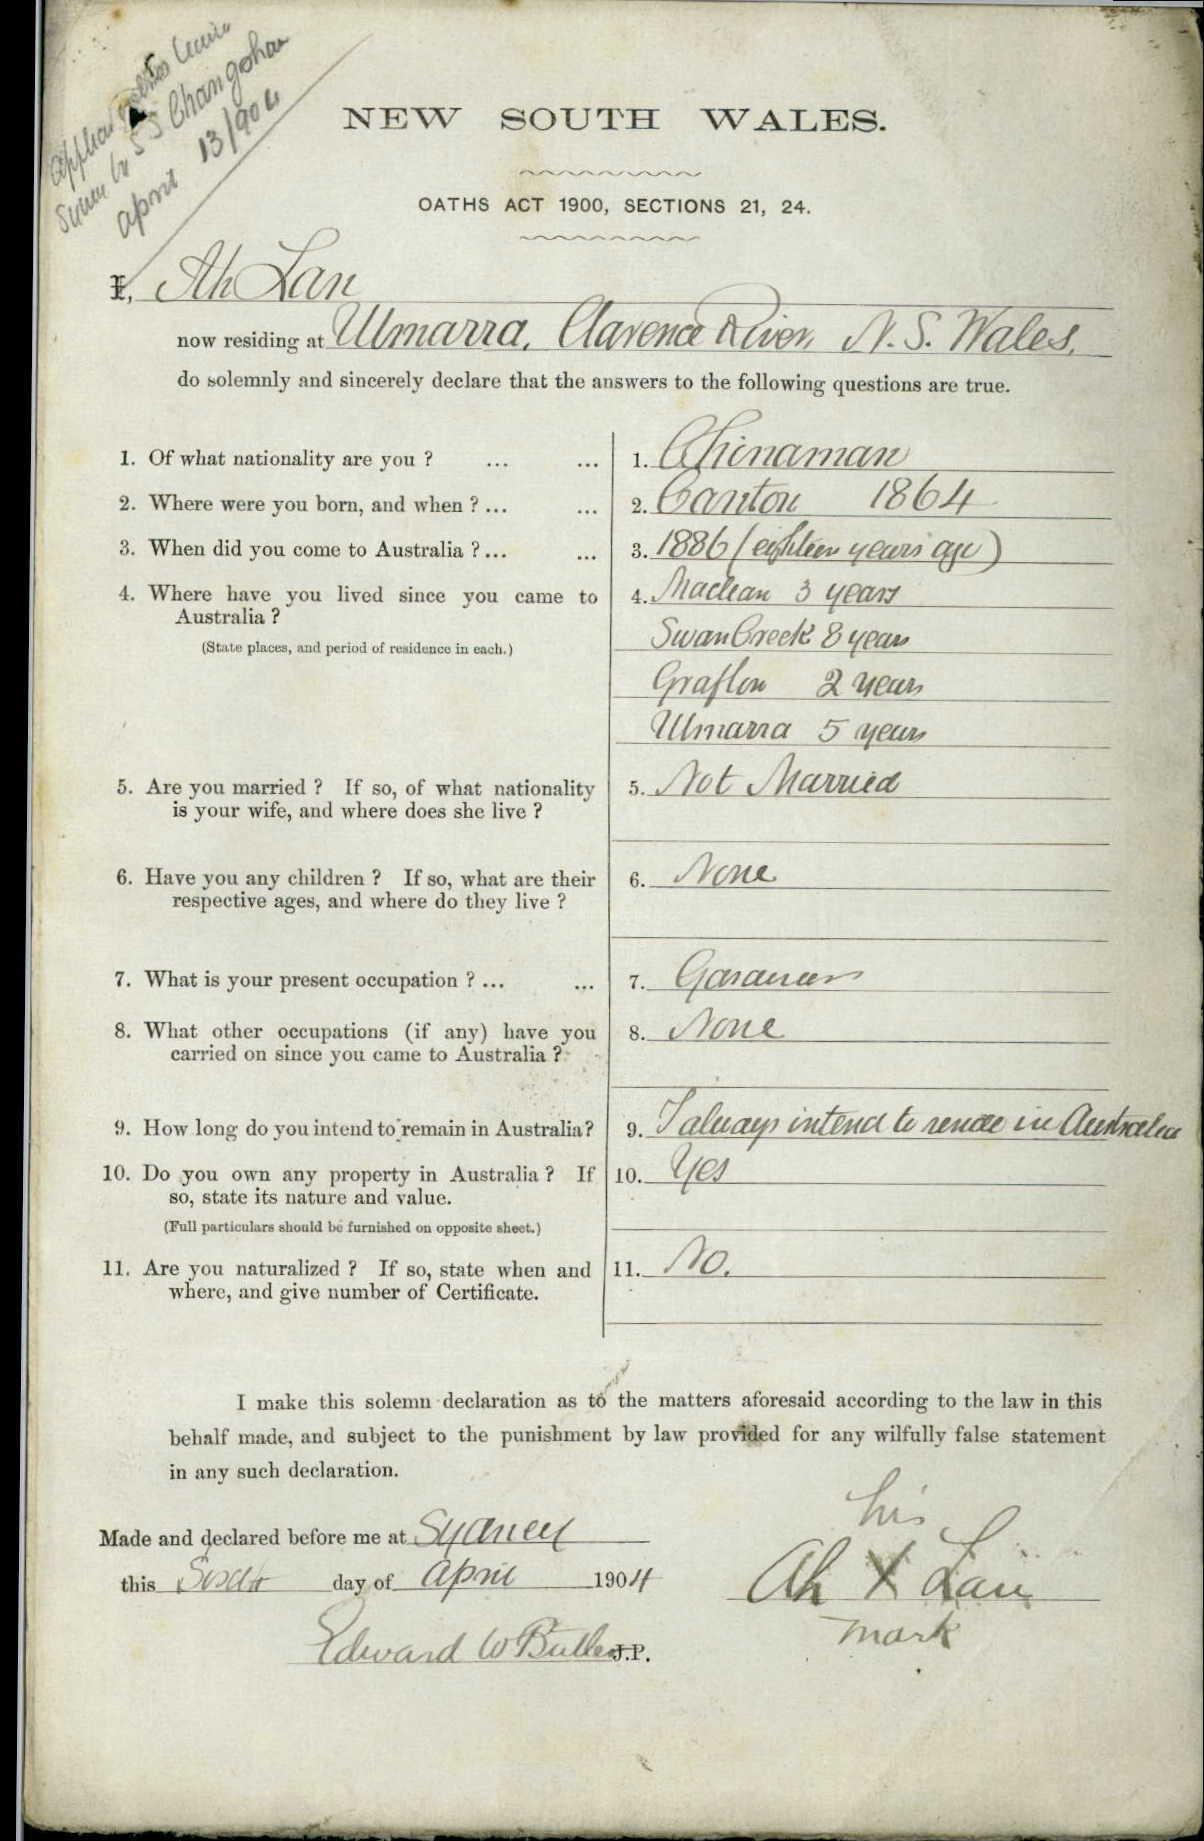 S S Changsha
April 13/904
NEW SOUTH WALES.
OATHS ACT 1900, SECTIONS 21, 24.
I, Ah Lan
now residing at Ulmarra, Clarence River, N. S. Wales,
do solemnly and sincerely declare that the answers to the following questions are true.
1. Of what nationality are you ? ... ... 1. Chinaman
2. Where were you born, and when ? ... ... 2. Canton 1864
3. When did you come to Australia ? ... ... 3. 1886 (eighteen years ago)
4. Where have you lived since you came to 4. Maclean 3 years
Australia ?
(State places, and period of residence in each.) Swan Creek 8 years
Grafton 2 years
Ulmarra 5 years
5. Are you married ? If so, of what nationality 5. Not Married
is your wife, and where does she live ?
6. Have you any children ? If so, what are their 6. None
respective ages, and where do they live ?
7. What is your present occupation ? ... ... 7. Gardener
8. What other occupations (if any) have you 8. None
carried on since you came to Australia ?
9. How long do you intend to remain in Australia? 9. I always intend to reside in Australia
10. Do you own any property in Australia ? If 10. Yes
so, state its nature and value.
(Full particulars should be furnished on opposite sheet.)
11. Are you naturalized ? If so, state when and 11. No.
where, and give number of Certificate.
I make this solemn declaration as to the matters aforesaid according to the law in this
behalf made, and subject to the punishment by law provided for any wilfully false statement
in any such declaration.
his
Made and declared before me at Sydney
this day of April 1904 Ah X Lan
mark
Edward W J.P.